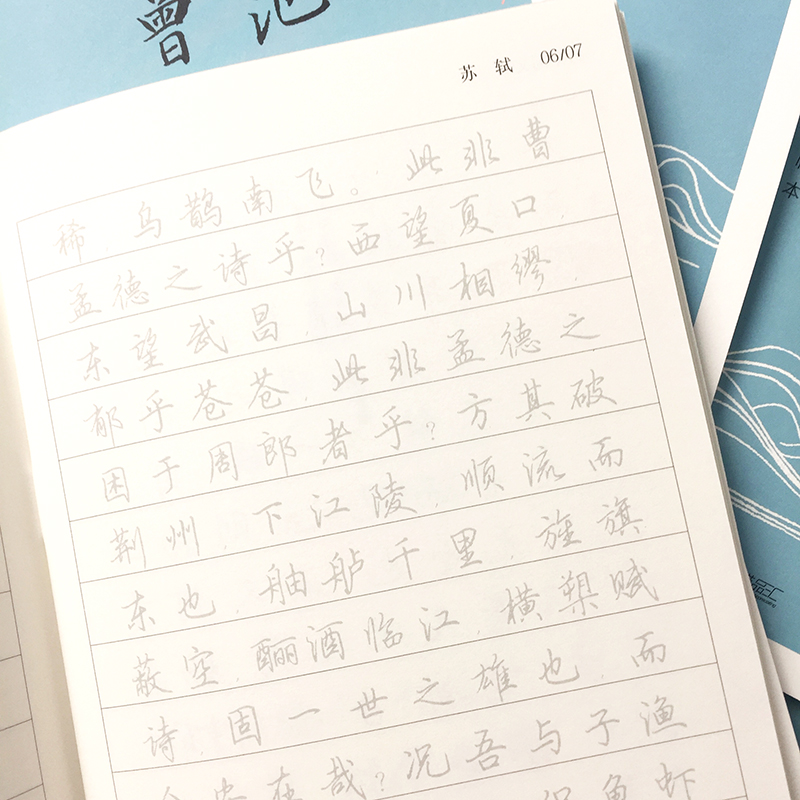 曾
苏 轼 06/07
稀,乌鹊南飞。此非曹
孟德之诗乎?西望夏口,
东望武昌,山川相缪,
郁乎苍苍,此非孟德之
困于周郎者乎?方其破
荆州,下江陵,顺流而
东也,舳舻千里,旌旗
蔽空,酾酒临江,横槊赋
诗,固一世之雄也,而
今安在哉?况吾与子渔
侣鱼虾
本